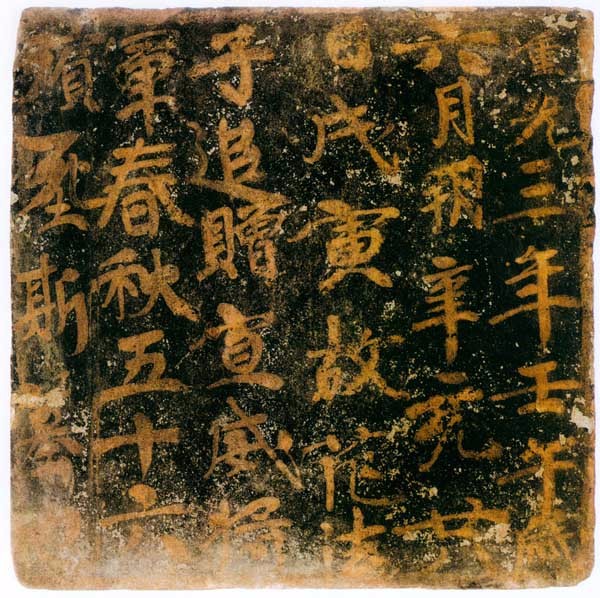 重光三年壬午歲
六月朔辛亥廿八
日戊寅故范法
子追贈宣威將
軍春秋五十六
斯